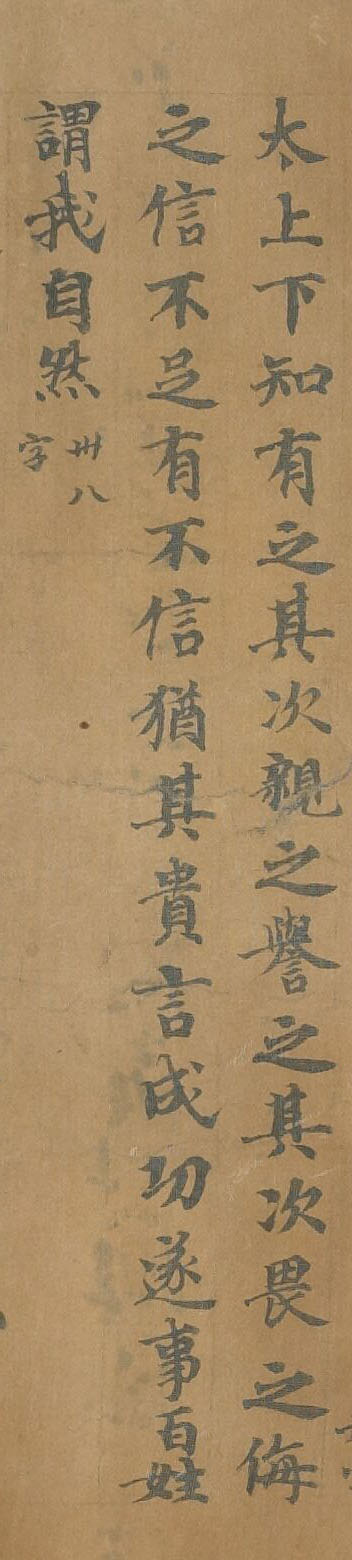 太上下知有之其次親之譽之其次畏之侮
之信不足有不信猶其貴言成功遂事百姓
謂我自然卌八字